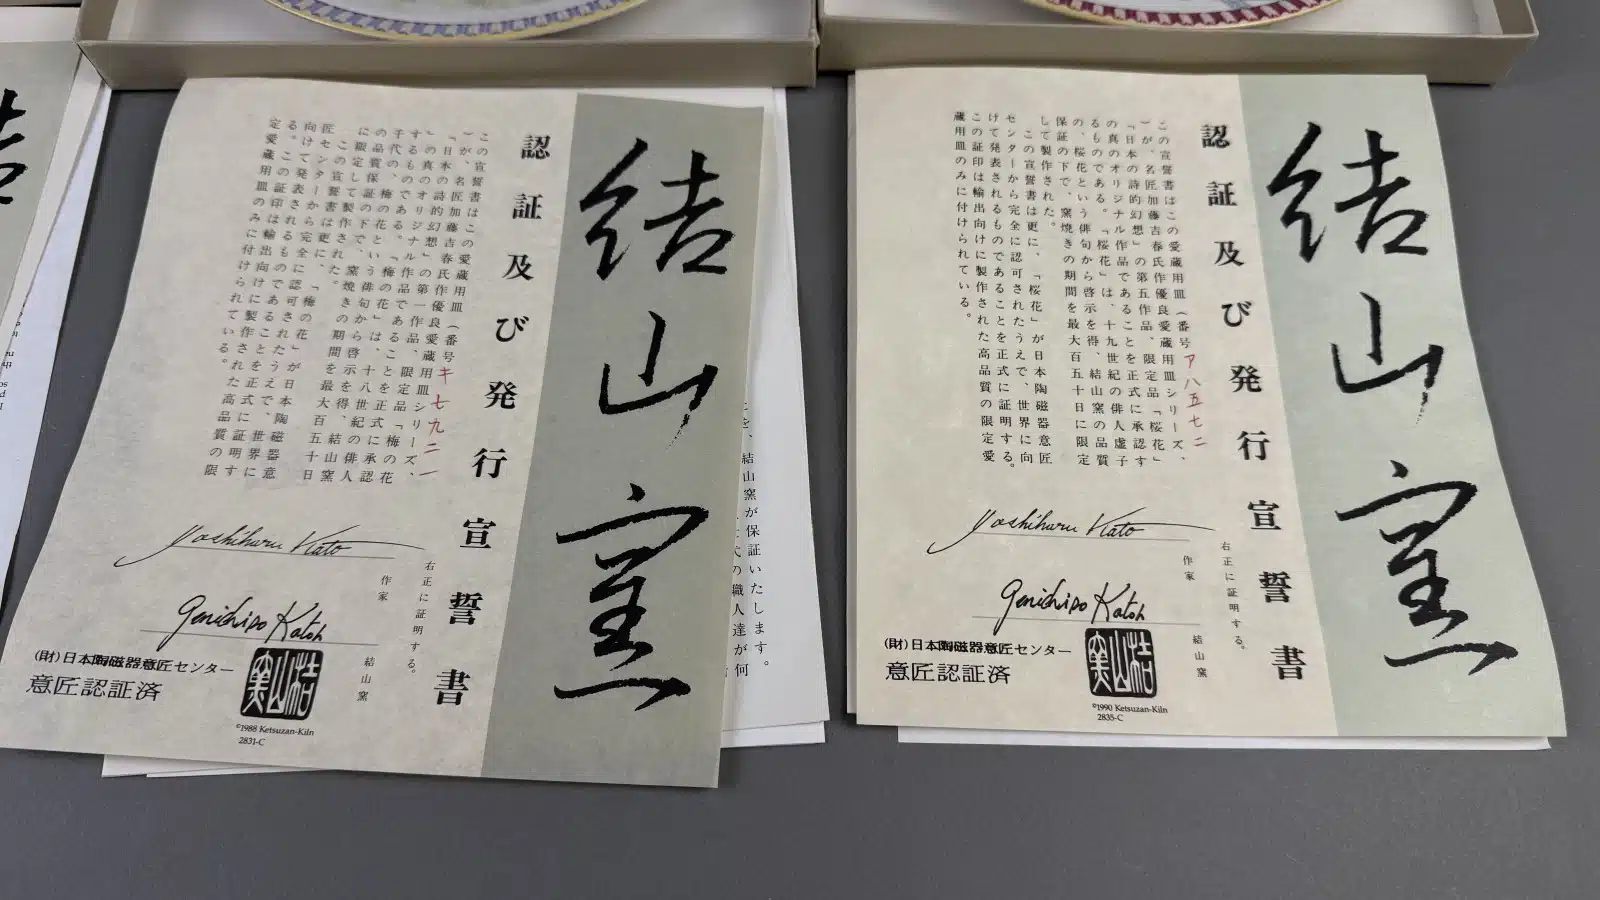 結山窯
認証及び発行宣誓書
この宣誓書はこの愛蔵用皿(番号キ七九二一
)が、名匠加藤吉春氏作優良愛蔵用皿シリーズ、
「日本の詩的幻想」の第一作品、限定品「梅の花
」の真のオリジナル作品であることを正式に承認
するものである。「梅の花」は、十八世紀の俳人
子代の、梅の花という俳句から啓示を得、結山窯
の品質保証の下で、窯焼きの期間を最大百五十日
に限定して製作された。
この宣誓書は更に、「梅の花」が日本陶磁器意
匠センターから完全に認可されたうえで、世界に
向けて発表されるものであることを正式に証明す
る。この証印は輸出向けに製作された高品質の限
定愛蔵用皿のみに付けられている。
右正に証明する。
Yoshiharu Kato
作家
Genichiro Katoh
結山窯
(財)日本陶磁器意匠センター
意匠認証済
結山窯
©1988 Ketsuzan-Kiln
2831-C
結山窯が保証いたします。
の職人達が何
結山窯
認証及び発行宣誓書
この宣誓書はこの愛蔵用皿(番号ア八五七二
)が、名匠加藤吉春氏作優良愛蔵用皿シリーズ、
「日本の詩的幻想」の第五作品、限定品「桜花」
の真のオリジナル作品であることを正式に承認す
るものである。「桜花」は、十九世紀の俳人虚子
の、桜花という俳句から啓示を得、結山窯の品質
保証の下で、窯焼きの期間を最大百五十日に限定
して製作された。
この宣誓書は更に、「桜花」が日本陶磁器意匠
センターから完全に認可されたうえで、世界に向
けて発表されるものであることを正式に証明する。
この証印は輸出向けに製作された高品質の限定愛
蔵用皿のみに付けられている。
右正に証明する。
Yoshiharu Kato
作家
Genichiro Katoh
結山窯
(財)日本陶磁器意匠センター
意匠認証済
結山窯
©1990 Ketsuzan-Kiln
2835-C